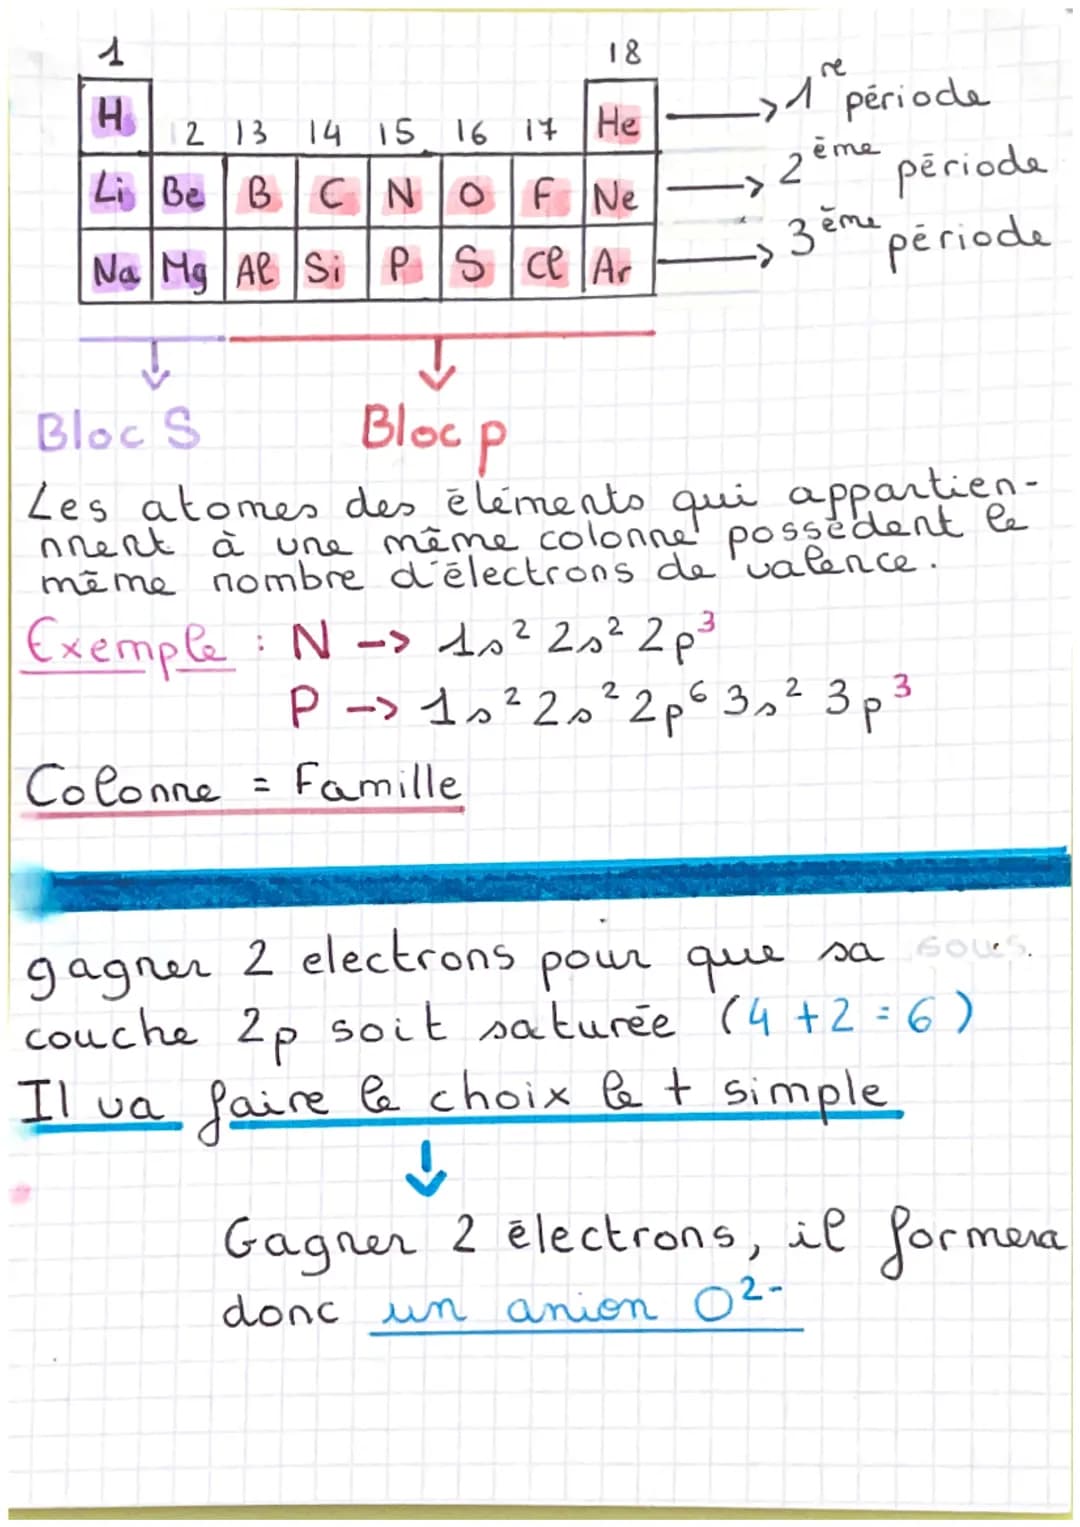 1 18
H 2 13 14 15 16 17 He → 1re période
Li Be B C N O F Ne → 2ème période
Na Mg Al Si P S Cl Ar → 3ème période
Bloc S Bloc p
Les atomes des éléments qui appartien-
nnent à une même colonne possèdent le
même nombre d'électrons de valence.
Exemple : N -> 1s² 2s² 2p³
P -> 1s² 2s² 2p⁶ 3s² 3p³
Colonne = Famille
gagner 2 electrons pour que sa sous.
couche 2p soit saturée (4+2=6)
Il va faire le choix le + simple
↓
Gagner 2 électrons, il formera
donc un anion O²⁻